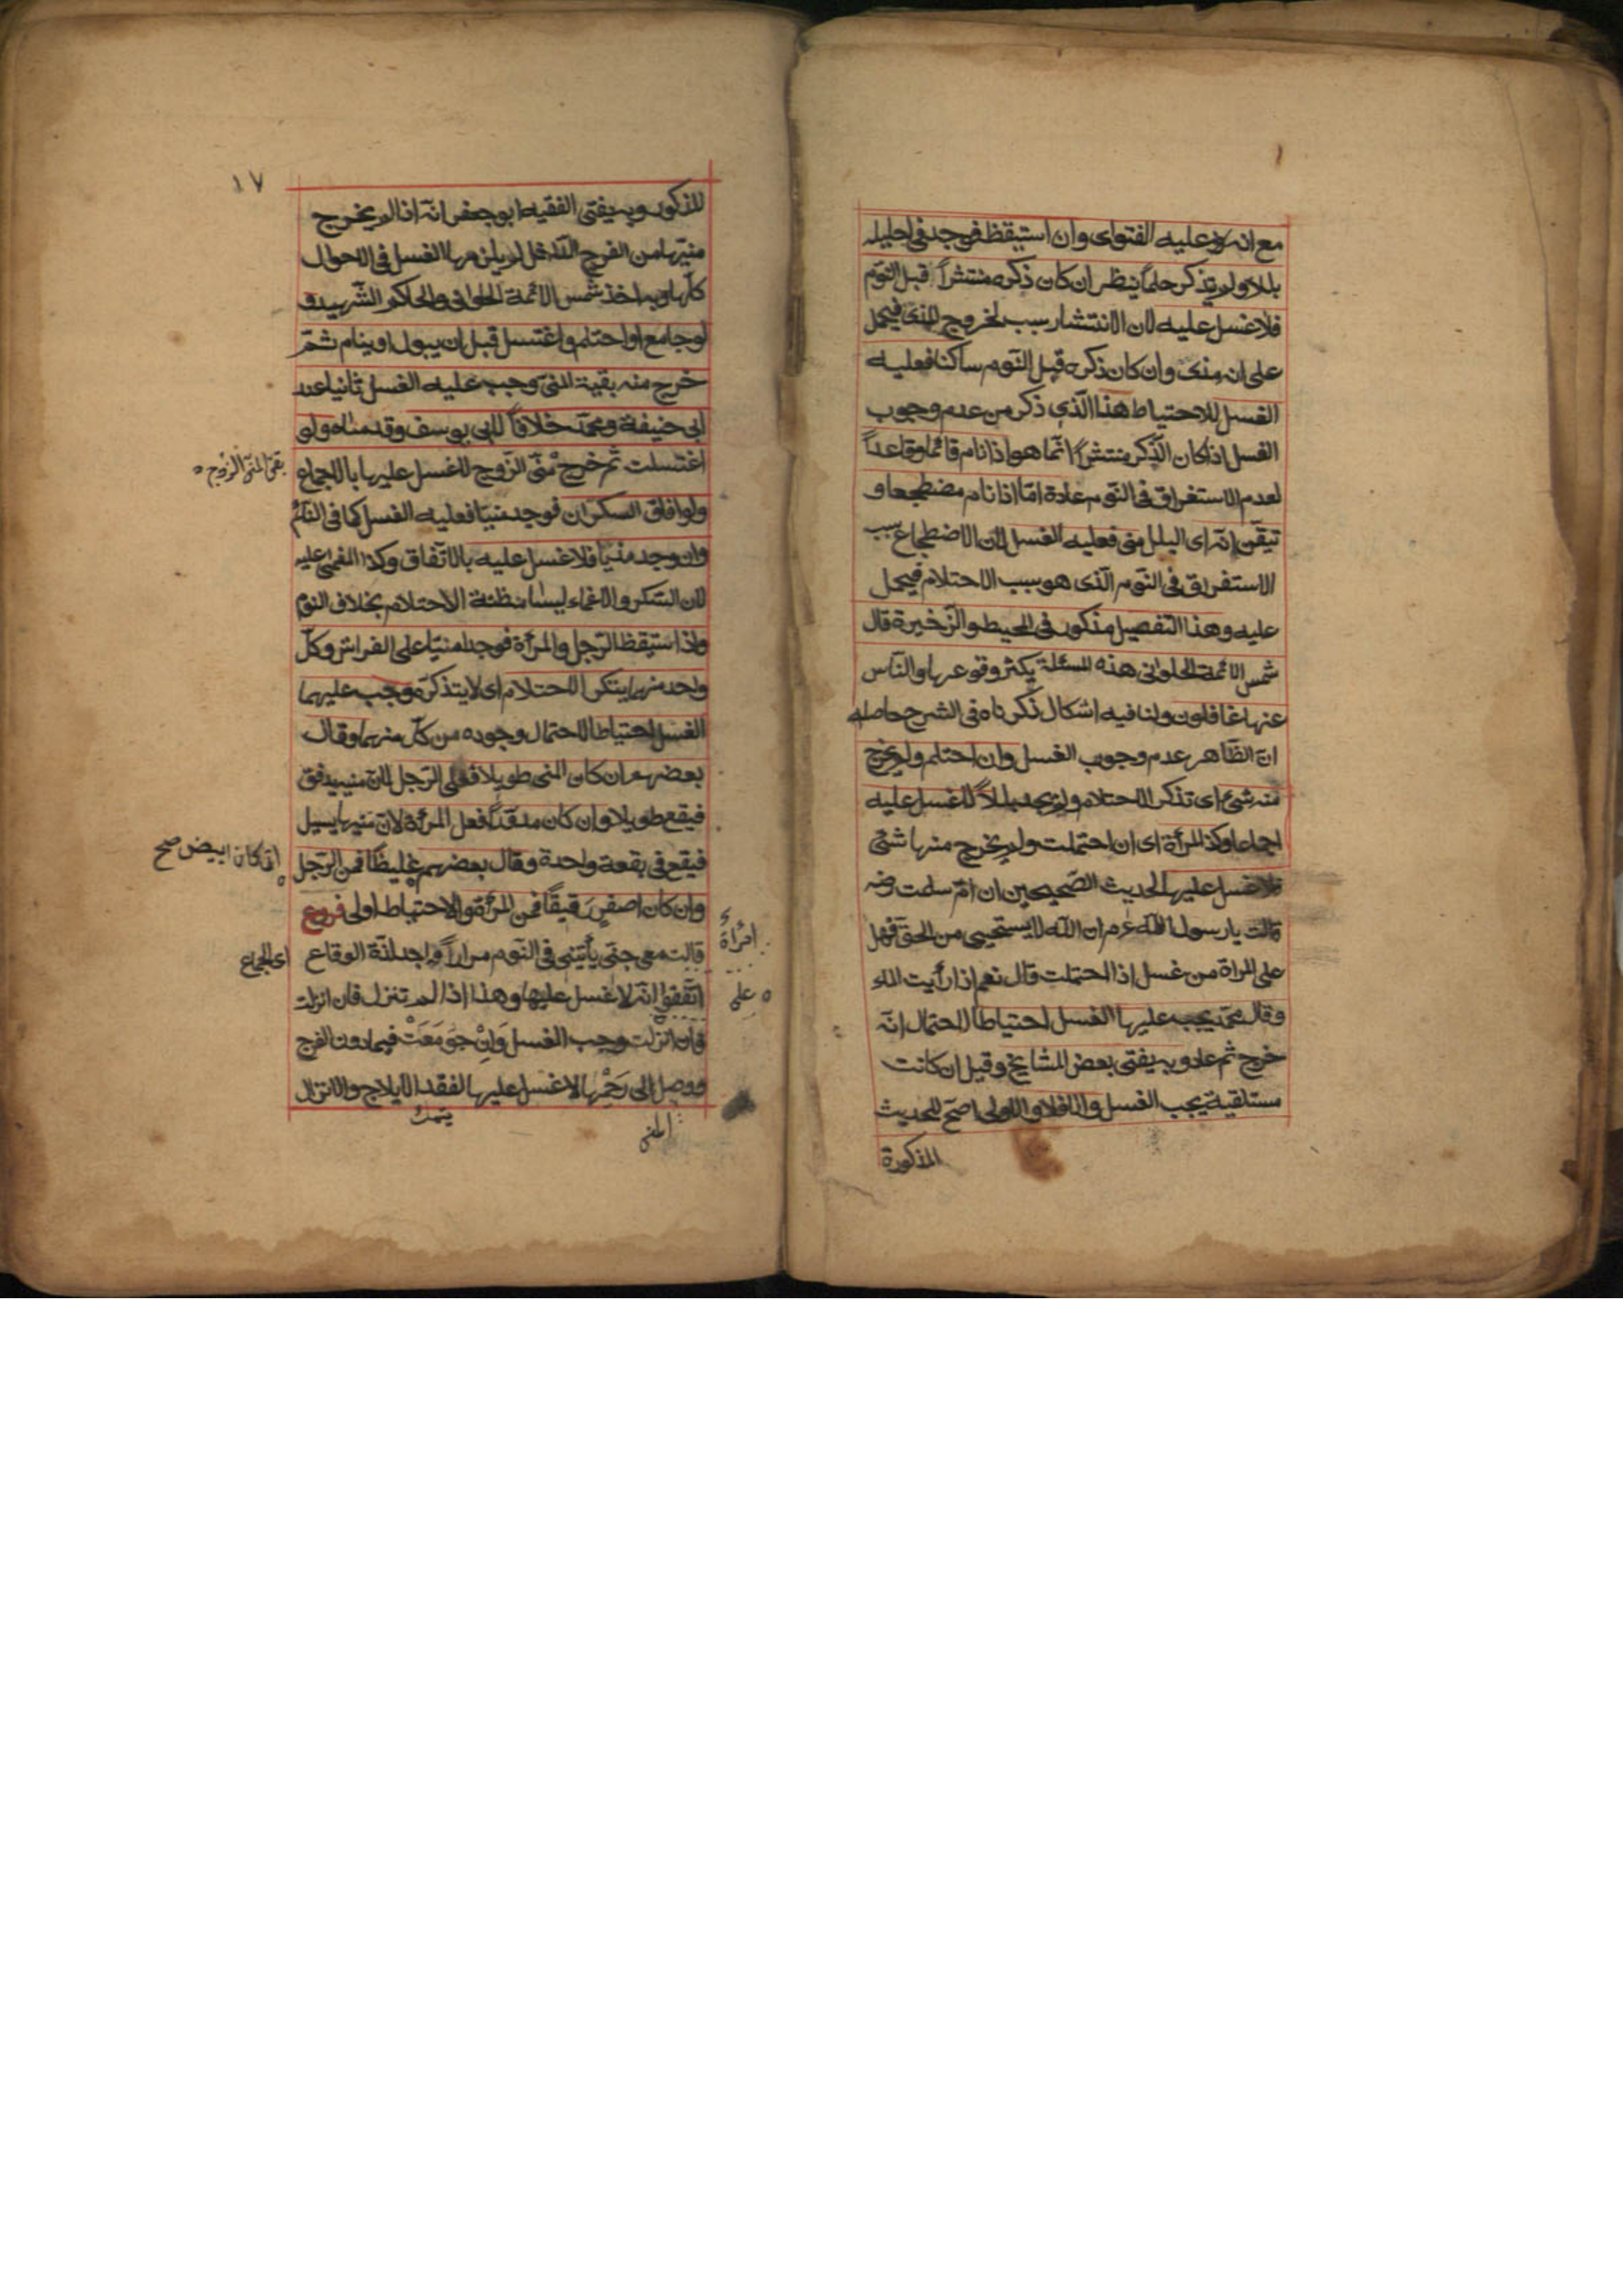 مع انه عليه الفتوى وان استيقظ فوجد فى احليله
بللا ولم يتذكر حلماً ينظر ان كان ذكره منتشراً قبل النوم
فلا غسل عليه لان الانتشار سبب لخروج المذى فيحمل
على انه مذى وان كان ذكره قبل النّوم ساكنا فعليه
الغسل للاحتياط هذا الّذى ذكر من عدم وجوب
الغسل اذا كان الذّكر منتشراً انّما هو اذا نام قائما وقاعداً
لعدم الاستغراق فى النّوم عادة امّا اذا نام مضطجعا و
تيقّن انّه اى البلل منى فعليه الغسل لان الاضطجاع سبب
الاستغراق فى النّوم الّذى هو سبب الاحتلام فيحمل
عليه وهذا التّفصيل مذكور فى المحيط والزّخيرة قال
شمس الائمة الحلوانى هذه المسئلة يكثر وقوعها والنّاس
عنها غافلون ولنا فيه اشكال ذكرناه فى الشرح حاصله
انّ الظّاهر عدم وجوب الغسل وان احتلم ولم يخرج
منه شئ اى تذكر الاحتلام ولم يجد بللاً لا غسل عليه
اجماعا وكذا المرأة اى ان احتلمت ولم يخرج منها شئ
فلا غسل عليها لحديث الصّحيحين ان امّ سلمت رضه
قالت يا رسول الله ان الله لا يستحيى من الحق فهل
على المراة من غسل اذا احتملت قال نعم اذا رأيت الماء
وقال محمّد يجب عليها الغسل احتياطا لاحتمال انّه
خرج ثم عاد وبه يفتى بعض المشايخ وقيل ان كانت
مستلقية يجب الغسل والا فلا والاولى اصحّ للحديث
المذكورة
١٧
المذكور وبه يفتى الفقيه ابو جعفر انّه اذا لم يخرج
منيّها من الفرج الدّاخل لم يلزمها الغسل فى الاحوال
كلّها وبه اخذ شمس الائمة الحلوانى والحاكم الشّهيد و
لو جامع او احتلم واغتسل قبل ان يبول او ينام ثمّ
خرج منه بقية المنىّ وجب عليه الغسل ثانيا عند
ابى حنيفة ومحمّد خلافاً لابى يوسف وقدمناه ولو
اغتسلت ثم خرج منىّ الزّوج لا غسل عليها بالاجماع
بقىّ المنىّ الزّوج
ولو افاق السكران فوجد منيّا فعليه الغسل كما فى النّائم
وان وجد مذيا فلا غسل عليه بالاتّفاق وكذا المغمى عليه
لان السّكر والاغماء ليسا مظنة الاحتلام بخلاف النوم
واذا استيقظ الرّجل والمرأة فوجدا منيّا على الفراش وكلّ
واحد منهما ينكر الاحتلام اى لا يتذكره وجب عليهما
الغسل احتياطا لاحتمال وجوده من كلّ منهما وقال
بعضهم ان كان المنى طويلا فعلى الرّجل لانّ منيه يدفق
فيقع طويلا وان كان مدوّراً فعلى المرأة لانّ منيها يسيل
فيقع فى بقعة واحدة وقال بعضهم غليظًا فمن الرّجل
ان كان ابيض صح
وان كان اصفر رقيقًا فمن المرأة والاحتياط اولى فروع
امرأة
قالت معى جنّى يأتينى فى النّوم مراراً واجد لذّة الوقاع
اى الجماع
اتّفقوا انّه لا غسل عليها وهذا اذا لم تنزل فان انزلت
على
فان انزلت وجب الغسل وَاِنْ جوُمَعَتْ فيما دون الفرج
ووصل الى رَحْمِها لا غسل عليها لفقد الايلاج والانزال
المنى